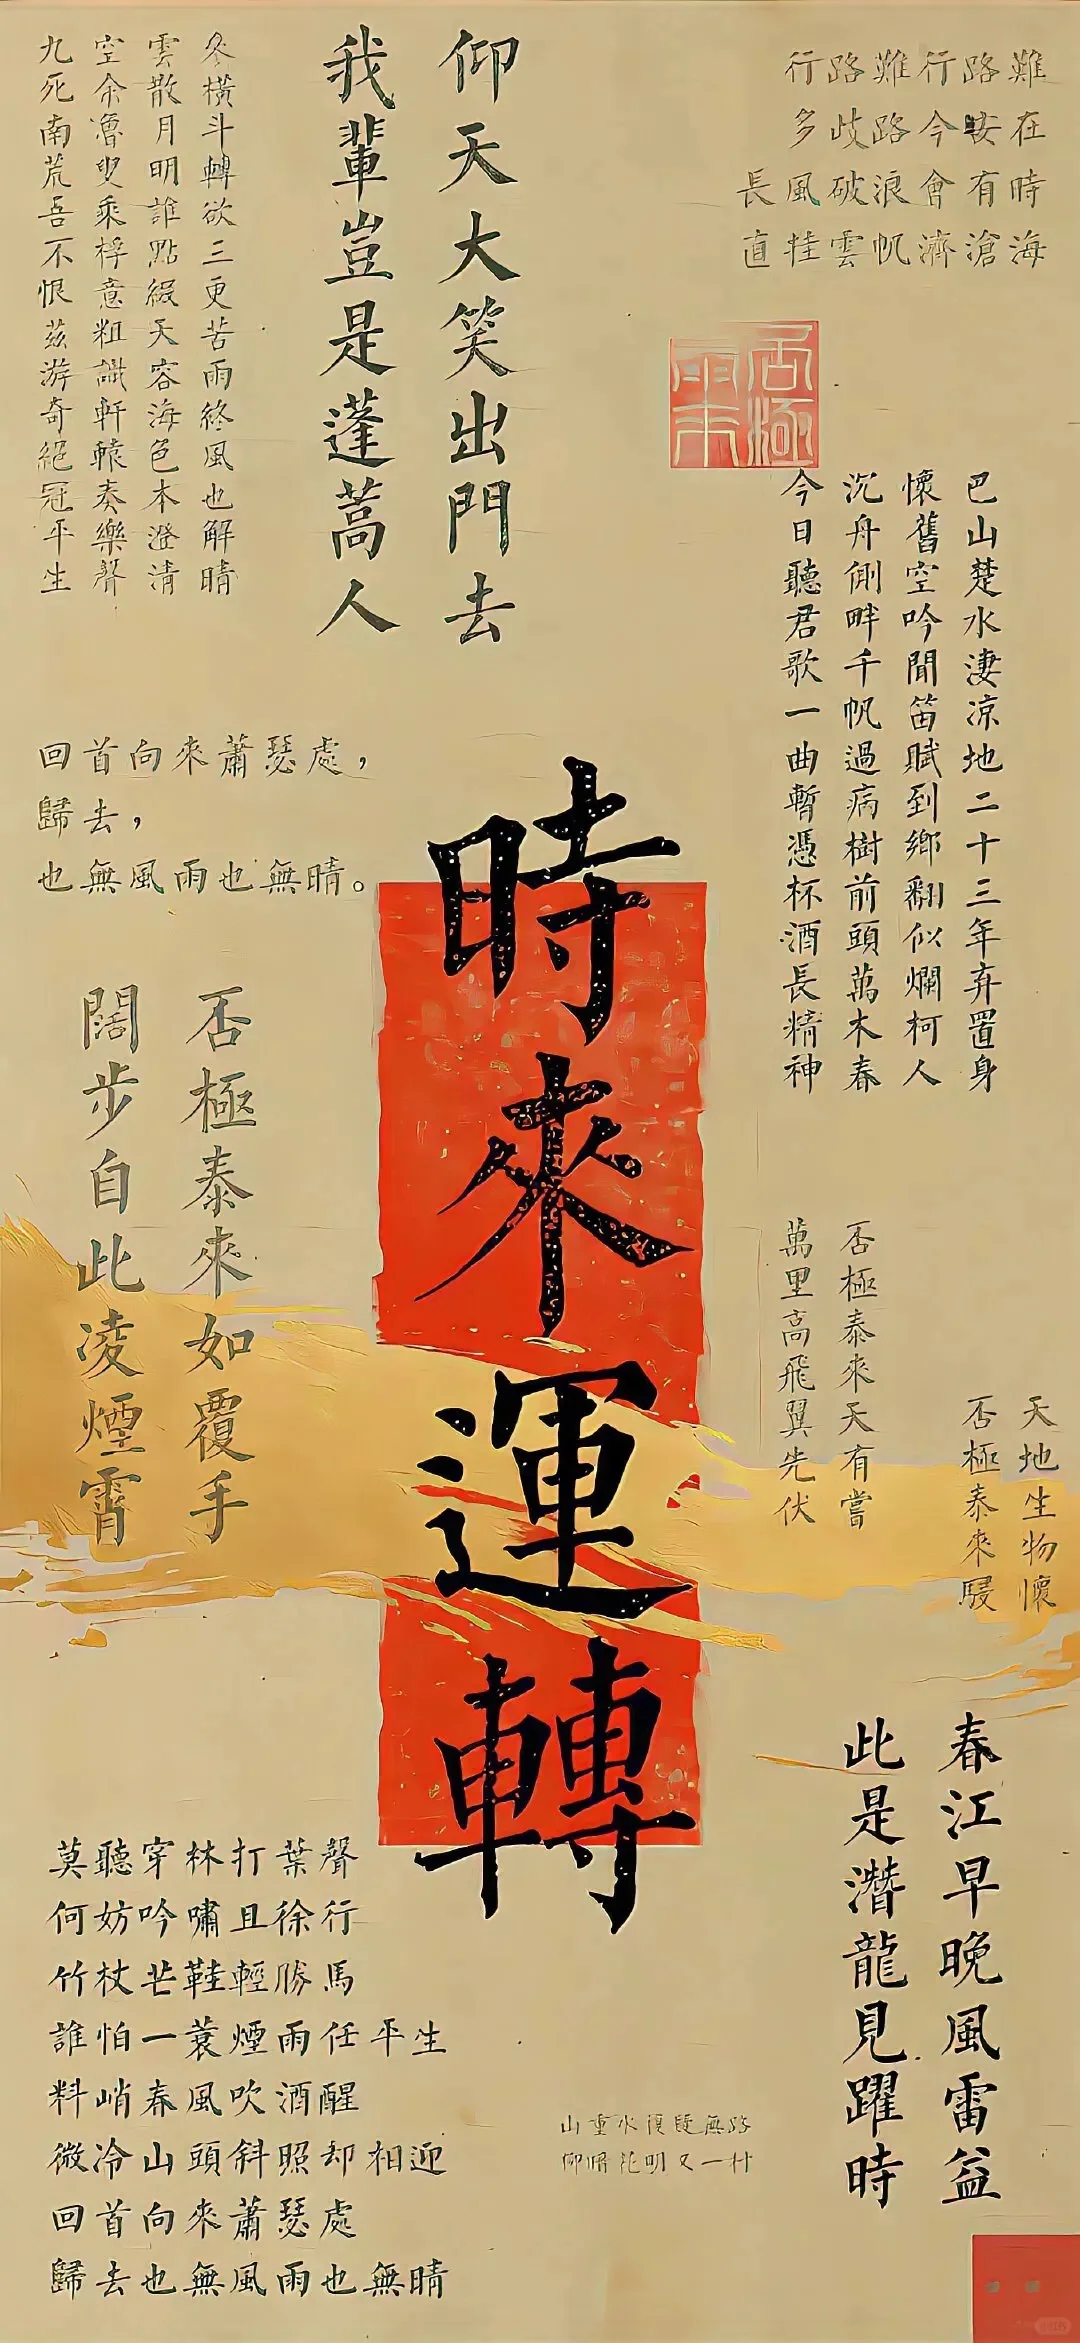 行路難行路難
多歧路今安在
長風破浪會有時
直挂雲帆濟滄海
仰天大笑出門去
我輩豈是蓬蒿人
冬橫斗轉欲三更苦雨終風也解晴
雲散月明誰點綴天容海色本澄清
空余魯叟乘桴意粗識軒轅奏樂聲
九死南荒吾不恨茲游奇絕冠平生
巴山楚水淒凉地二十三年弃置身
懷舊空吟聞笛賦到鄉翻似爛柯人
沉舟側畔千帆過病樹前頭萬木春
今日聽君歌一曲暫憑杯酒長精神
回首向來蕭瑟處，
歸去，
也無風雨也無晴。
時來運轉
否極泰來如覆手
闊步自此凌煙霄
否極泰來天有嘗
萬里高飛翼先伏
天地生物懷
否極泰來駸
春江早晚風雷益
此是潛龍見躍時
莫聽穿林打葉聲
何妨吟嘯且徐行
竹杖芒鞋輕勝馬
誰怕一蓑煙雨任平生
料峭春風吹酒醒
微冷山頭斜照却相迎
回首向來蕭瑟處
歸去也無風雨也無晴
山重水復疑無路
柳暗花明又一村